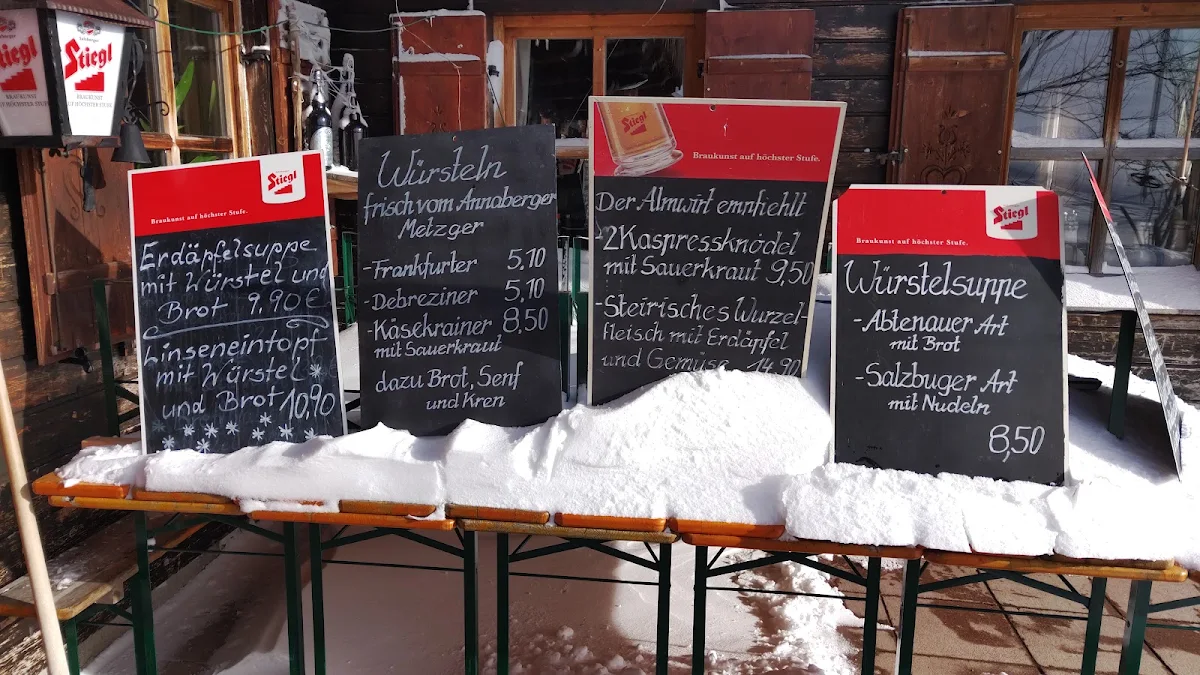 Stiegl
Stiegl
BRAUKUNST
AUF HÖCHSTER STUFE.
Stiegl
Braukunst auf höchster Stufe.
Erdäpfelsuppe
mit Würstel und
Brot 9,90 €
Linseneintopf
mit Würstel
und Brot 10,90
Würsteln
frisch vom Annaberger
Metzger
-Frankfurter 5,10
-Debreziner 5,10
-Käsekrainer 8,50
mit Sauerkraut
dazu Brot, Senf
und Kren
Stiegl
Braukunst auf höchster Stufe.
Der Almwirt empfiehlt
-2 Kaspressknödel
mit Sauerkraut 9,50
-Steirisches Wurzel-
fleisch mit Erdäpfel
und Gemüse 14,90
Stiegl
Braukunst auf höchster Stufe.
Würstelsuppe
-Abtenauer Art
mit Brot
-Salzbuger Art
mit Nudeln
8,50